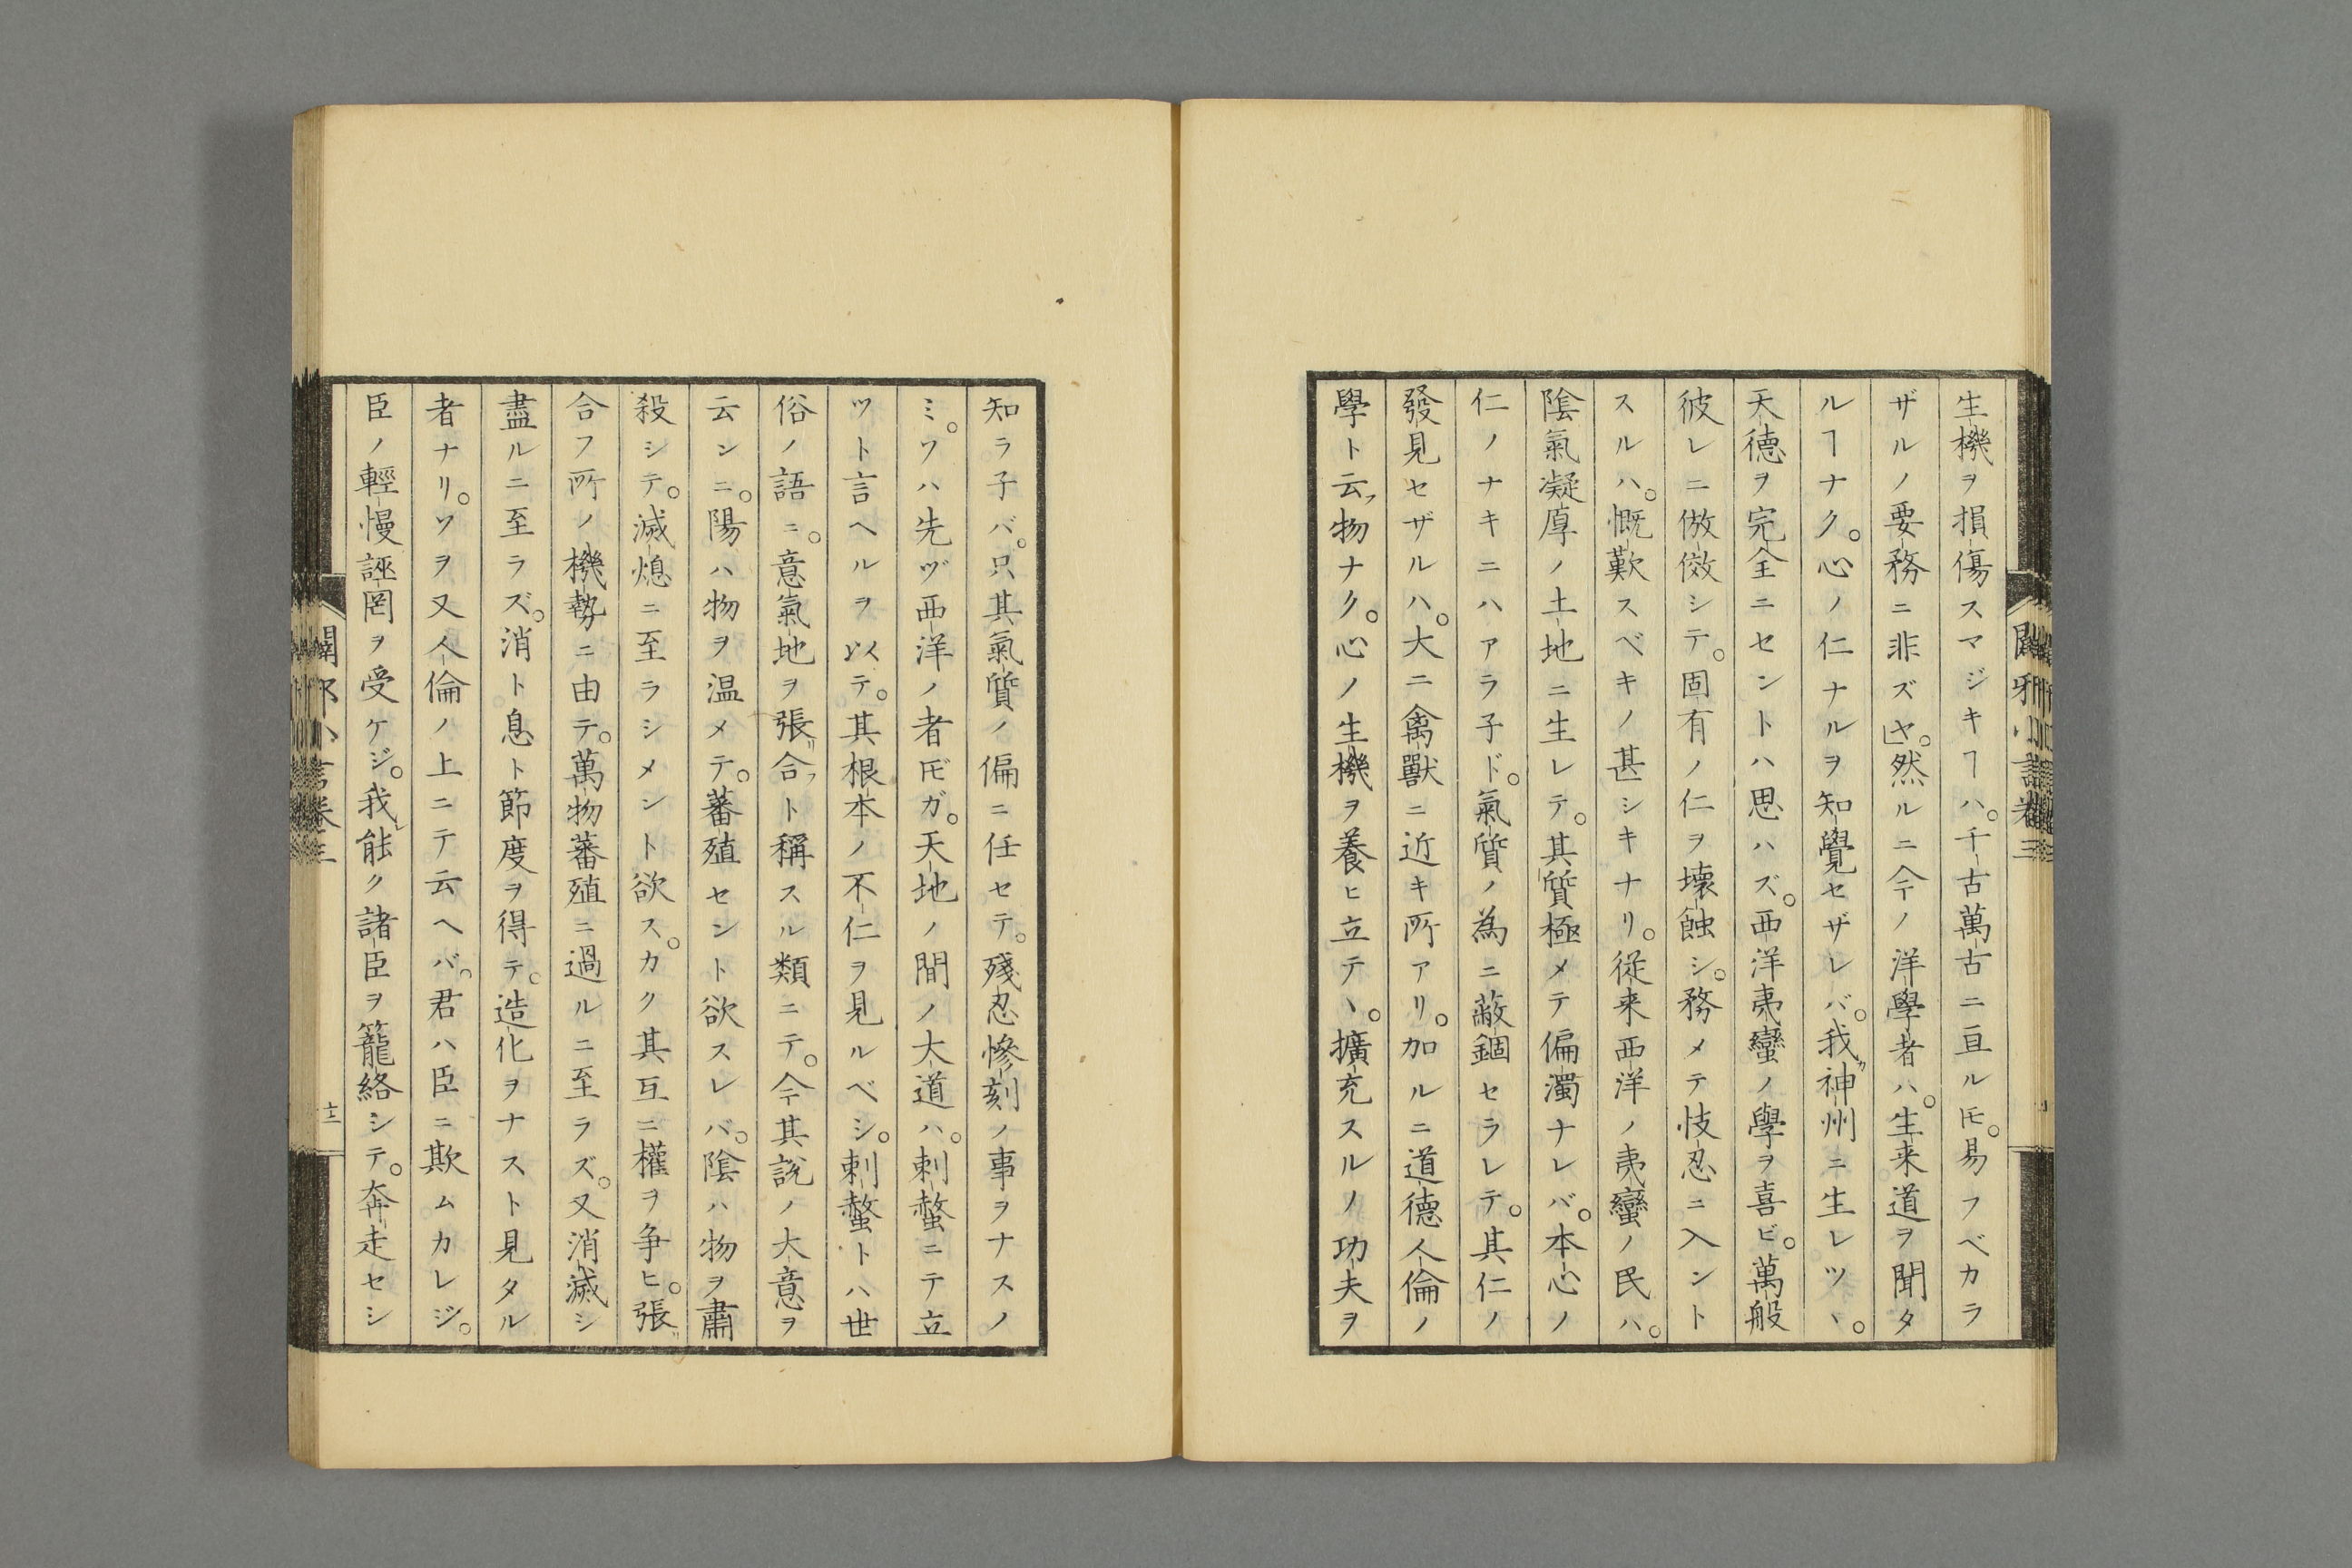 生機ヲ損傷スマジキヿハ。千古萬古ニ亘ル𪜈。易フベカラ
ザルノ要務ニ非ズヤ。然ルニ今ノ洋學者ハ。生来道ヲ聞タ
ルヿナク。心ノ仁ナルヲ知覺セザレバ。我ガ神州ニ生レツヽ。
天德ヲ完全ニセントハ思ハズ。西洋夷蠻ノ學ヲ喜ビ。萬般
彼レニ倣傚シテ。固有ノ仁ヲ壊蝕シ。務メテ忮忍ニ入ント
スルハ。慨歎スベキノ甚シキナリ。従来西洋ノ夷蠻ノ民ハ。
陰氣凝厚ノ土地ニ生レテ。其質極メテ偏濁ナレバ。本心ノ
仁ノナキニハアラ子ド。氣質ノ為ニ蔽錮セラレテ。其仁ノ
發見セザルハ。大ニ禽獸ニ近キ所アリ。加ルニ道德人倫ノ
學ト云フ物ナク。心ノ生機ヲ養ヒ立テヽ。擴充スルノ功夫ヲ
知ラ子バ。只其氣質ノ偏ニ任セテ。殘忍慘刻ノ事ヲナスノ
ミ。ソハ先ヅ西洋ノ者𪜈ガ。天地ノ間ノ大道ハ。刺螫ニテ立
ツト言ヘルヲ以テ。其根本ノ不仁ヲ見ルベシ。刺螫トハ世
俗ノ語ニ。意氣地ヲ張リ合フト稱スル類ニテ。今其説ノ大意ヲ
云ンニ。陽ハ物ヲ温メテ。蕃殖セント欲スレバ。陰ハ物ヲ肅
殺シテ。滅熄ニ至ラシメント欲ス。カク其互ニ權ヲ争ヒ。張リ
合フ所ノ機勢ニ由テ。萬物蕃殖ニ過ルニ至ラズ。又消滅シ
盡ルニ至ラズ。消ト息ト節度ヲ得テ。造化ヲナスト見タル
者ナリ。ソヲ又人倫ノ上ニテ云ヘバ。君ハ臣ニ欺ムカレジ。
臣ノ輕慢誣罔ヲ受ケジ。我レ能ク諸臣ヲ籠絡シテ。奔走セシ
闢邪小言卷三
十二